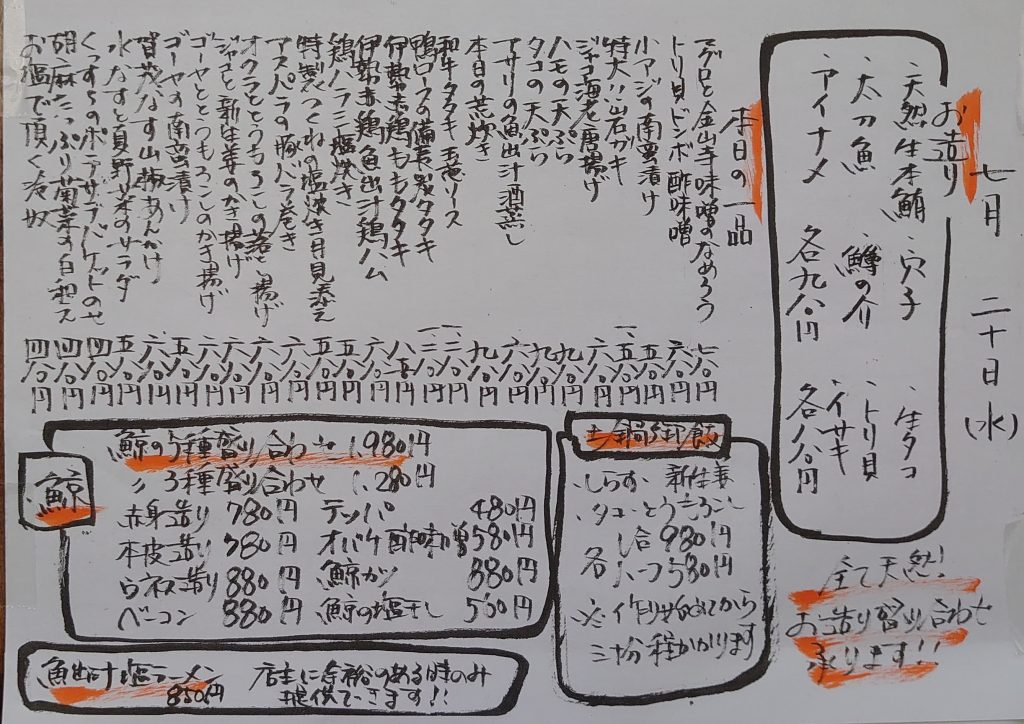 七月二十日(水)
お造り
・天然生本鮪 ・穴子 ・生タコ
・太刀魚 ・鱒の介 ・トリ貝
・アイナメ ・イサキ
各九八〇円 各八八〇円
全て天然!
お造り盛り合わせ
承ります!!
本日の一品
マグロと金山寺味噌のなめろう 七八〇円
トリ貝ドンボ酢味噌 六八〇円
小アジの南蛮漬け 六八〇円
特大岩ガキ 一、五八〇円
ジャコ海老唐揚げ 六八〇円
ハモの天ぷら 九八〇円
タコの天ぷら 九八〇円
アサリの魚出汁酒蒸し 六八〇円
本日の荒炊き 九八〇円
和牛タタキ 玉ねぎソース 一、三八〇円
鴨ロースの備長炭タタキ 一、三八〇円
伊勢赤鶏ももタタキ 八五〇円
伊勢赤鶏 魚出汁鶏ハム 六八〇円
鶏ハラミ塩焼き 五八〇円
特製つくねの塩波焼き月見添え 五八〇円
アスパラの豚バラ巻き 六八〇円
オクラととうもろこしの落とし揚げ 六八〇円
ジャコと新生姜のかき揚げ 六八〇円
ゴーヤととうもろこしのかき揚げ 六八〇円
ゴーヤの南蛮漬け 五八〇円
賀茂なす山椒あんかけ 六八〇円
水なすと夏野菜のサラダ 五八〇円
ポテサラバケットのせ 四八〇円
胡麻たっぷり菊菜の白和え 四八〇円
お塩で頂く冷奴 四八〇円
土鍋御飯
・しらす・新生姜
・タコ・とうもろこし
各 一合980円
八つ580円
※作り始めてから
三十分程かかります
鯨
鯨の5種盛り合わせ 1,980円
〃 3種盛り合わせ 1,280円
赤身造り 780円 テッパ 480円
本皮造り 780円 オバケ酢味噌 580円
ウネス造り 880円 鯨カツ 880円
ベーコン 880円 鯨の塩干し 550円
魚出汁塩ラーメン 850円
店主に余裕のある時のみ
提供できます!!